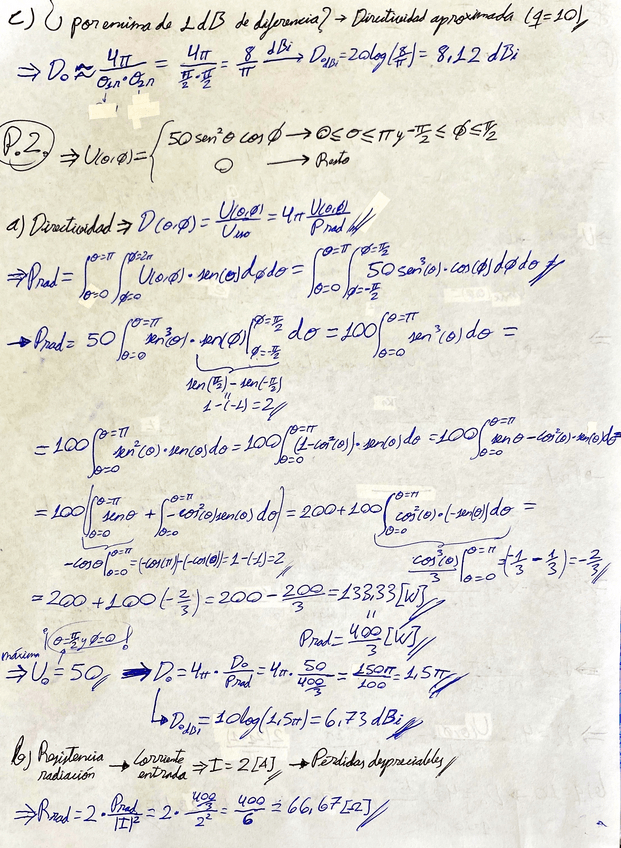 c) ¿ por encima de 1 dB de diferencia? → Directividad aproximada (q=10)
⇒ D₀ ≈ 4π/(θ₁ₙ·θ₂ₙ) = 4π/(π/2·π/2) = 8/π dBi → D₀dBi = 20log(8/π) = 8,12 dBi
P.2. ⇒ U(θ,φ) = { 50 sen²θ cosφ → 0≤θ≤π y -π/2 ≤ φ ≤ π/2
0 → Resto
a) Directividad ⇒ D(θ,φ) = U(θ,φ)/Uiso = 4π U(θ,φ)/Prad
⇒ Prad = ∫_{θ=0}^{θ=π} ∫_{φ=0}^{φ=2π} U(θ,φ)·sen(θ) dφ dθ = ∫_{θ=0}^{θ=π} ∫_{φ=-π/2}^{φ=π/2} 50 sen³(θ)·cos(φ) dφ dθ
→ Prad = 50 ∫_{θ=0}^{θ=π} sen³(θ)·sen(φ)|_{φ=-π/2}^{φ=π/2} dθ = 100 ∫_{θ=0}^{θ=π} sen³(θ) dθ =
sen(π/2) - sen(-π/2)
1-(-1) = 2
= 100 ∫_{θ=0}^{θ=π} sen²(θ)·sen(θ) dθ = 100 ∫_{θ=0}^{θ=π} (1-cos²(θ))·sen(θ) dθ = 100 ∫_{θ=0}^{θ=π} senθ - cos²(θ)·sen(θ) dθ =
= 100 [∫_{θ=0}^{θ=π} senθ + ∫_{θ=0}^{θ=π} -cos²(θ) sen(θ) dθ] = 200 + 100 ∫_{θ=0}^{θ=π} cos²(θ)·(-sen(θ)) dθ =
-cosθ|_{θ=0}^{θ=π} = (-cos(π)) - (-cos(0)) = 1-(-1) = 2
cos³(θ)/3|_{θ=0}^{θ=π} = (-1/3 - 1/3) = -2/3
= 200 + 100 (-2/3) = 200 - 200/3 = 133,33 [W]
¡θ=π/2 y φ=0!
Prad = 400/3 [W]
máxima
⇒ U₀ = 50 ⇒ D₀ = 4π · D₀/Prad = 4π · 50/(400/3) = 150π/100 = 1,5π
↳ D₀dBi = 10log(1,5π) = 6,73 dBi
b) Resistencia radiación → Corriente entrada ⇒ I = 2 [A] → Pérdidas despreciables
⇒ Rrad = 2 · Prad/|I|² = 2 · (400/3)/2² = 400/6 = 66,67 [Ω]